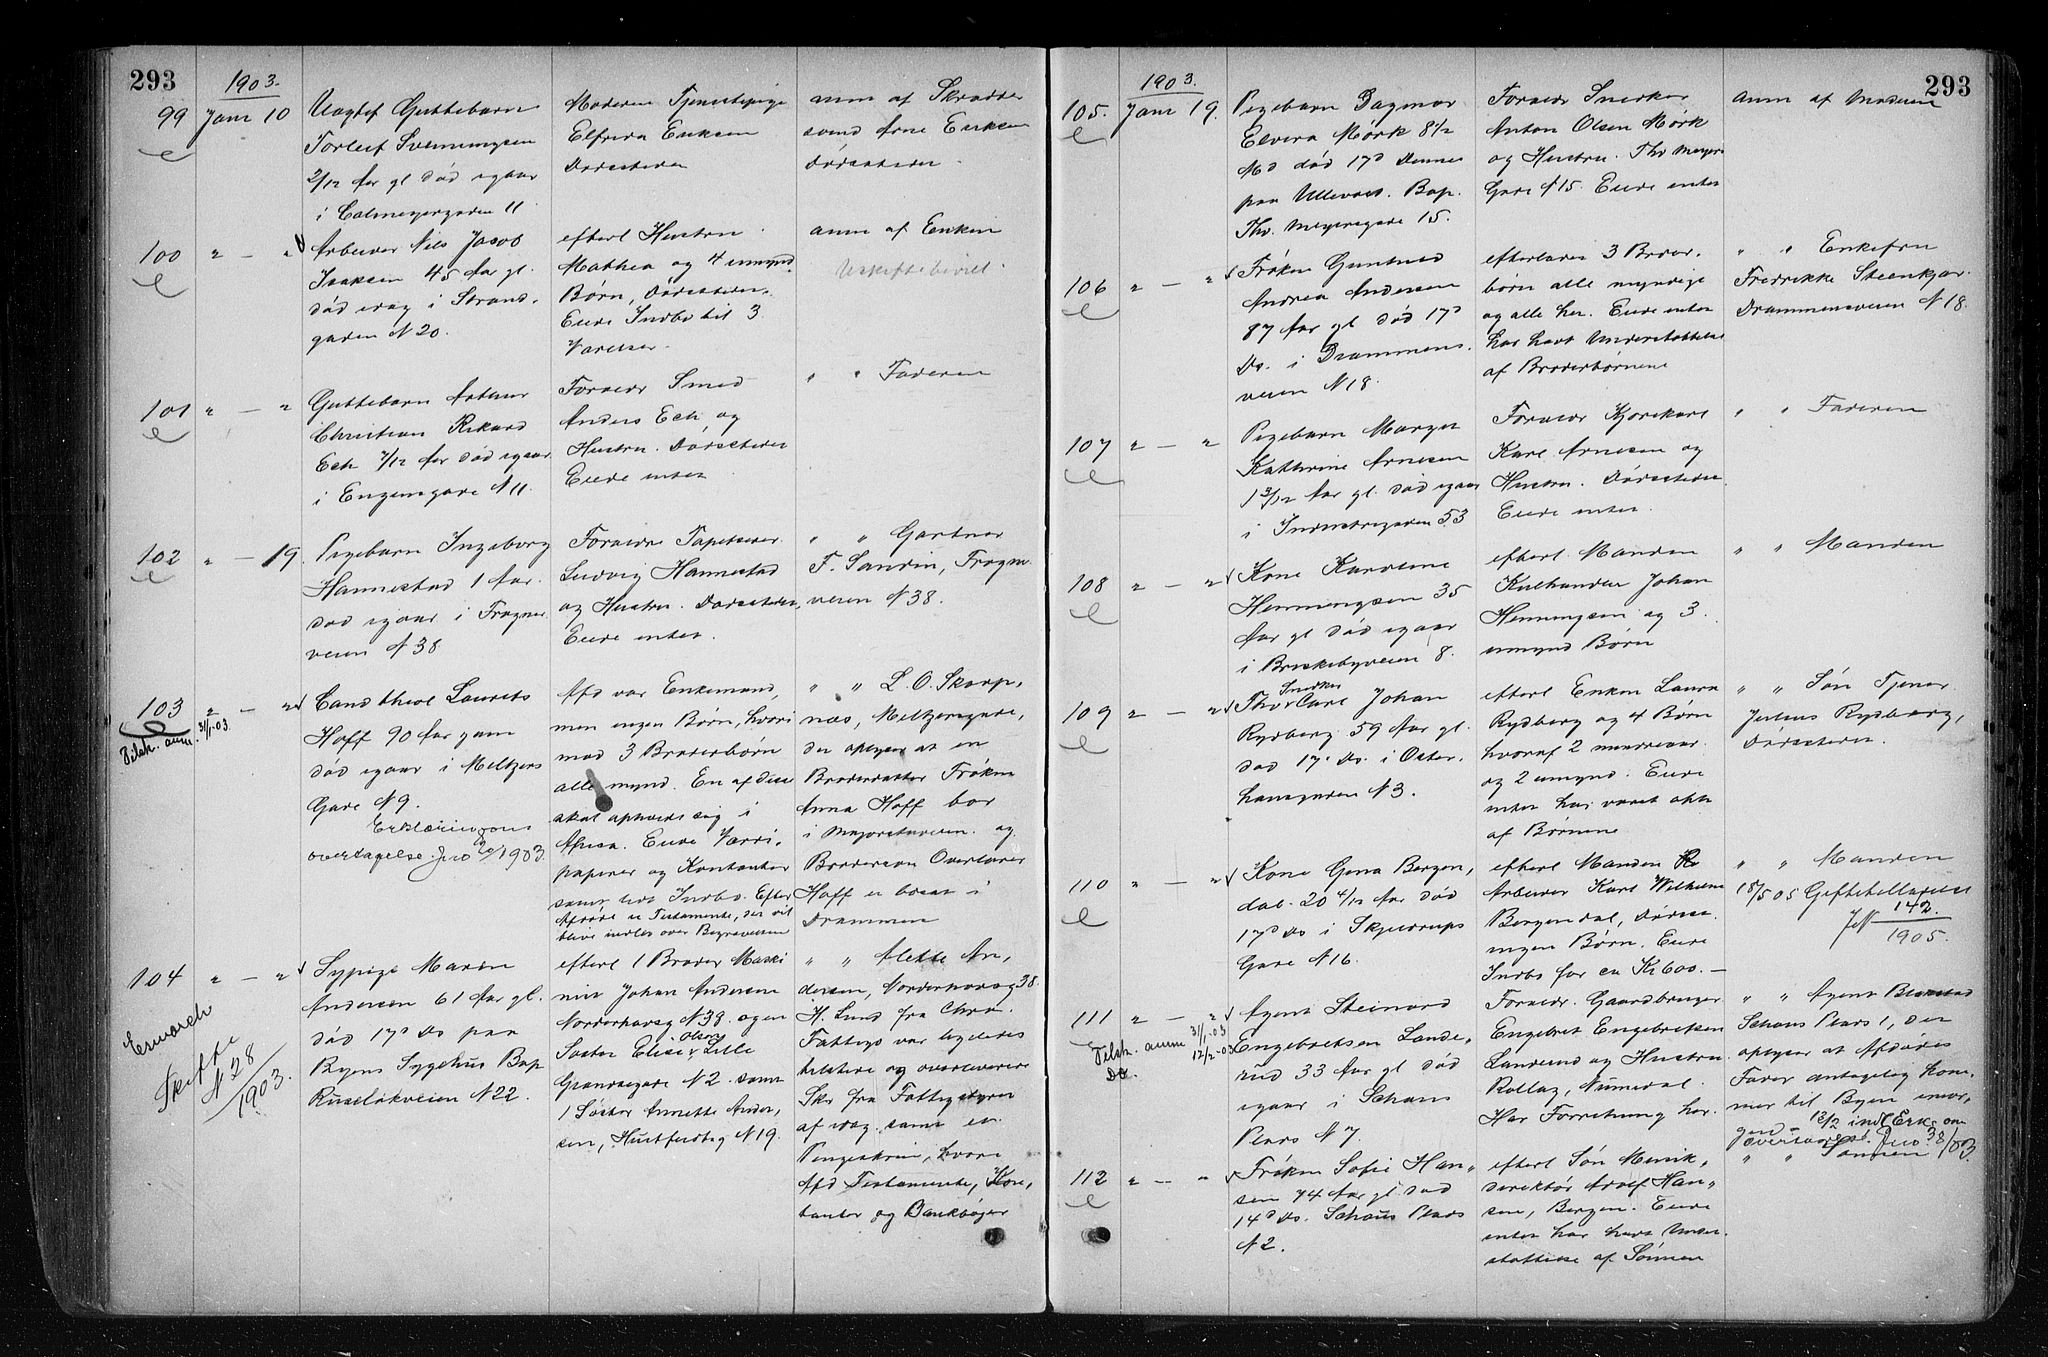 293
1903.
99 Janr 10
Uægtef Guttebarn
Torleif Svenningsen
2/12 Aar gl død igaar
i Calmeyergaden 11.
Moderen Tjenestepige
Elfrida Eriksen
Dødsstedet
anm af Skrædder
svend Arne Eriksen
Dødsstedet.
100 " — "
Arbeider Nils Jacob
Isaksen 45 Aar gl.
død idag i Strand-
gaden N 20.
efterl Hustru
Mathea og 4 umynd.
Børn, Dødsstedet.
Eiede Indbo til 3
anm af Enken
Uskiftebevill.
101 " — "
Guttebarn Arthur
Christian Rikard
Eck 7/12 Aar død igaar
i Engensgade N 11.
Forældr Smed
Anders Eck og
Hustru. Dødsstedet
Eiede intet
" " Faderen
102 " — 19.
Pigebarn Ingeborg
Hannestad 1 Aar.
død igaar i Frogner
veien N 38
Forældre Tapetserer
Ludvig Hannestad
og Hustru. Dødsstedet
Eiede intet.
" " Gartner
F. Sandin, Frogn
veien N 38.
103 " — "
Tilsk. anm. 31/1-03
Cand theol Laurits
Hoff 90 Aar gam
død igaar i Meltzers
Gade N 9.
Erklæring om
overtagelse Jno 20/1903.
Afd var Enkemand,
men ingen Børn, hvori
mod 3 Broderbørn
alle mynd. En af disse
skal opholde sig i
Africa. Eiede Værdi-
papirer og Kontanter
samt lidt Indbo. Efter
Afdøde er Testamente, der vil
blive indlev over Begravelsen
" " L. O. Skarp-
næs, Meltzersgade,
der oplyser at en
Broderdatter Frøken
Anna Hoff bor
i Majorstuveien og
Brodersøn Overlærer
Hoff er bosat i
Drammen
104 " — "
Esmarch
Skifte
N 28
1903.
Sypige Maren
Andersen 61 Aar gl.
død 17d Ds paa
Byens Sygehus Bop
Ruseløkveien N 22.
efterl 1 Broder Maski
nist Johan Andersen
Norderhovsg N 38. og en
Søster Elise Olsen Lille
Grændsegade N 2 samt
1 Søster Annette Ander-
sen, Huitfeldtsg N 19.
" " Alette An-
dersen, Norderhovsg 38.
H. Lund fra Chra.
Fattigv var ligeledes
tilstede og overleverede
Skr fra Fattigstyret
af idag samt en
Pengeskrin, hvori
Afd Testamente, Kon-
tanter og Bankbøger
293
1903.
105. Janr 19.
Pigebarn Dagmar
Elvera Mørk 8 1/2
Md død 17d Dennes
paa Ullevaal. Bop.
Thv. Meyersgade 15.
Forældr Snedker
Anton Olsen Mørk
og Hustru. Thv Meyers
Gade N 15. Eiede intet
anm af Moderen
106 " — "
Frøken Guntnes
Andrea Andersen
87 Aar gl død 17d
Ds. i Drammens-
veien N 18.
efterlader 3 Broder-
børn alle myndige
og alle her. Eiede intet
har havt Understøttelse
af Broderbørnene
" " Enkefru
Fredrikke Steenkjær
Drammensveien N 18.
107 " — "
Pigebarn Margit
Kathrine Arnesen
1 3/12 Aar gl. død igaar
i Industrigaden 53
Forældr Kjørekarl
Karl Arnesen og
Hustru. Dødsstedet
Eiede intet.
" " Faderen
108 " — "
Kone Karoline
Henningsen 35
Aar gl død igaar
i Briskebyveien 8.
efterl. Manden
Kulhandler Johan
Henningsen og 3
umynd Børn
" " Manden
109 " — "
Snedker
Thor Carl Johan
Rydberg 59 Aar gl.
død 17d Ds. i Oster-
hausgaden N 3.
efterl Enken Laura
Rydberg og 4 Børn
hvoraf 2 mindreaar
og 2 umynd. Eiede
intet har været
af Børnene
" " Søn Tjener
Julius Rydberg,
Dødsstedet.
110 " — "
Kone Gena Bergen-
dal. 20 4/12 Aar død
17d Ds i Skjerdrups
Gade N 16.
efterl Manden
Arbeider Karl Wilhelm
Bergendal, Dødsst.
ingen Børn. Eiede
Indbo for ca Kr 600.—
" " Manden
18/5 05 Giftetilladelse
Jno 142.
1905.
111 " — "
Tilsk. anm 31/1-03
Do. 12/2-03
Agent Steinard
Engebretsen Lande-
rud 33 Aar gl død
igaar i Schous
Plads N 7.
Forældr. Gaardbruger
Engebret Engebretsen
Landerud og Hustru
Rollag, Numedal.
Har Forretning her.
" " Agent Blakstad
Schous Plads 1, der
oplyser at Afdødes
Fader antagelig kom-
mer til Byen imor-
gen.
13/2 indl Erk. om
overtagelse. Jno 38/03.
112 " — "
Frøken Sofie Han-
sen 74 Aar gl død
14d Ds. Schous Plads
N 2.
efterl Søn Musik-
direktør Adolf Han-
sen, Bergen. Eiede
intet har havt Under-
støttelse af Sønnen
" " Sønnen